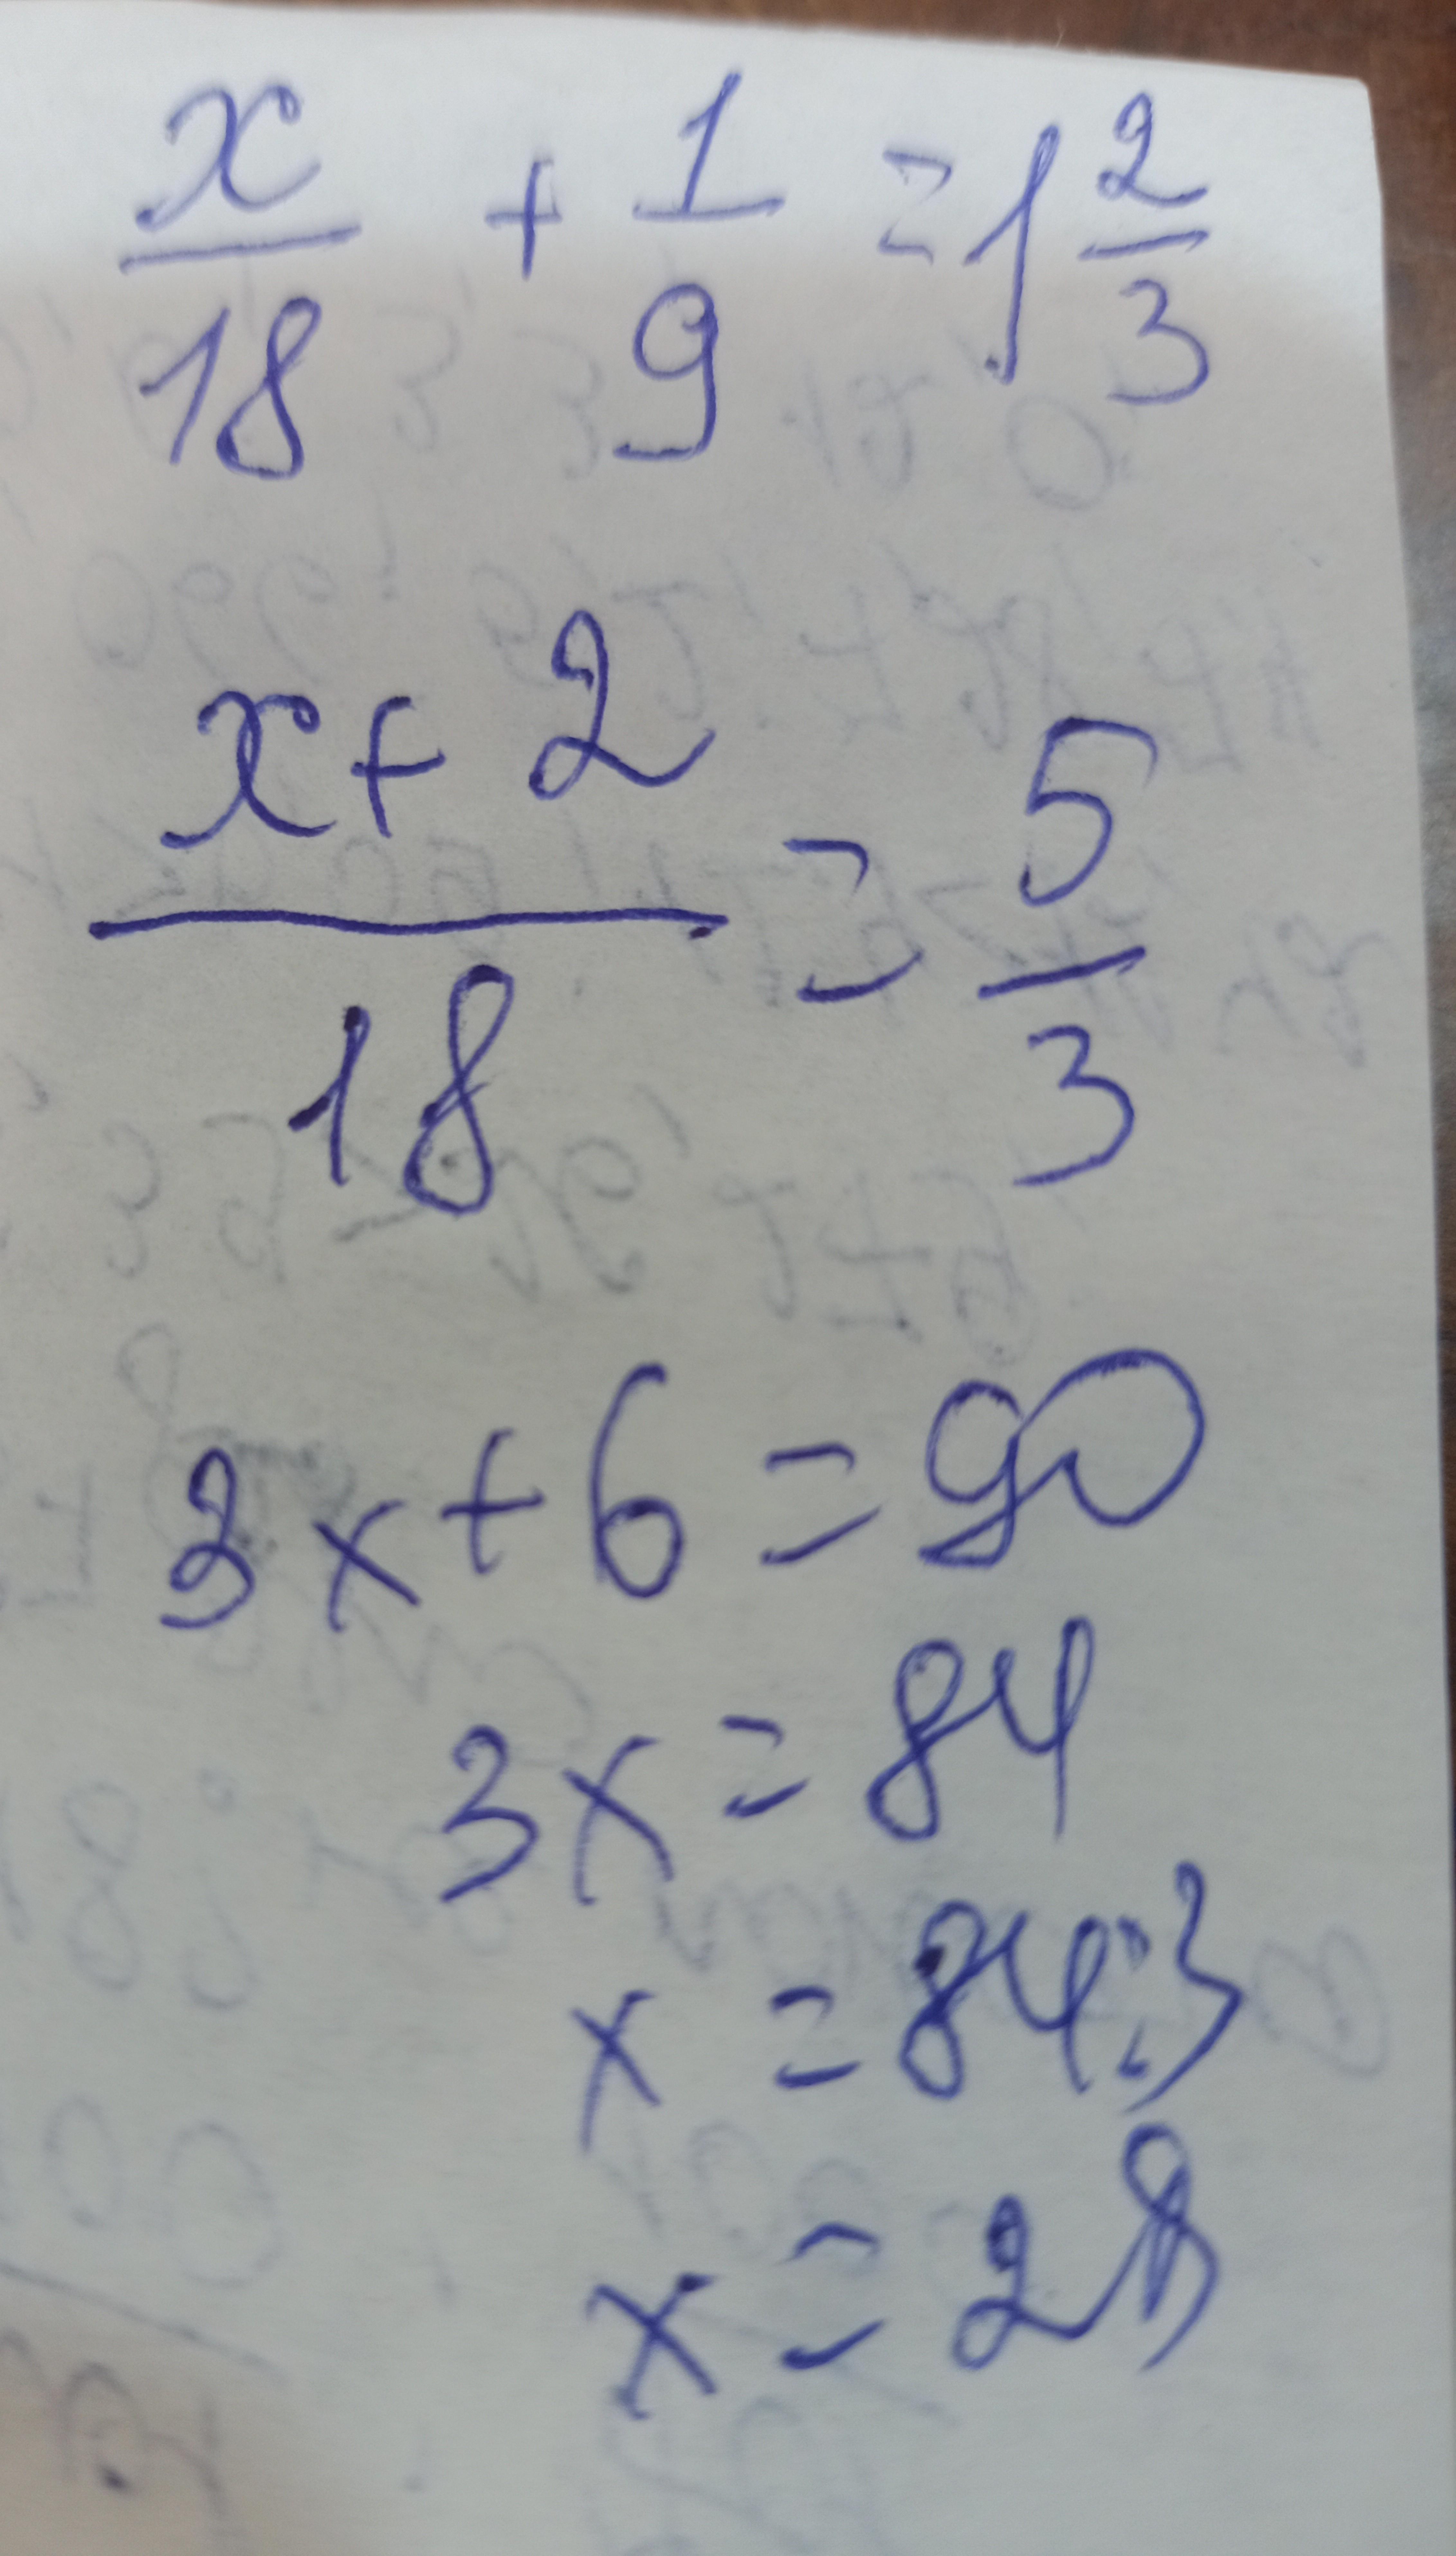 x/18 + 1/9 = 1 2/3
x+2/18 = 5/3
3x+6=90
3x=84
x=84:3
x=28